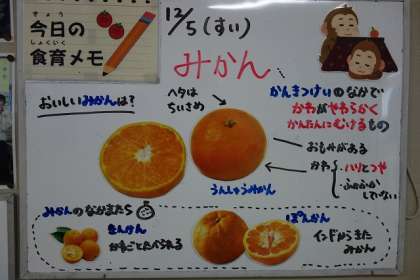 きょう
今日の
しょくいく
食育メモ
12/5(すい)
みかん
おいしいみかんは?
ヘタは
ちいさめ
かんきつけいのなかで
かわがやわらかく
かんたんにむけるもの
おもみがある
かわ・ハリとつや
・ふかふか
していない
うんしゅうみかん
みかんのなかまたち
きんかん
かわごとたべられる
ぽんかん
インドからきた
みかん